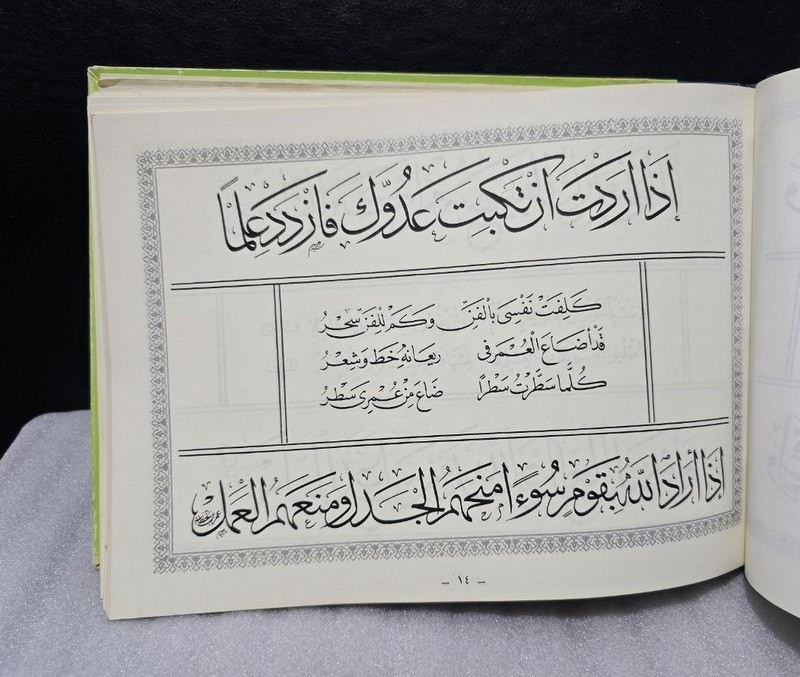 اذا اردت ان تكبت عدوك فازدد علما
كَلِفَتْ نَفْسِى بِالْفَنِّ وَكَمْ لِلْفَنِّ سِحْرُ
قَدْ أَضَاعَ الْعُمْرَ فى رَيعَانهُ خَطٌ وَشِعْرُ
كُلَّمَا سَطَّرْتُ سَطْرًا ضَاعَ مِنْ عُمْرِى سَطْرُ
اذا أراد اللهُ بقومٍ سُوءًا منحهمُ الجدلَ ومنعهمُ العملَ
– ١٤ –